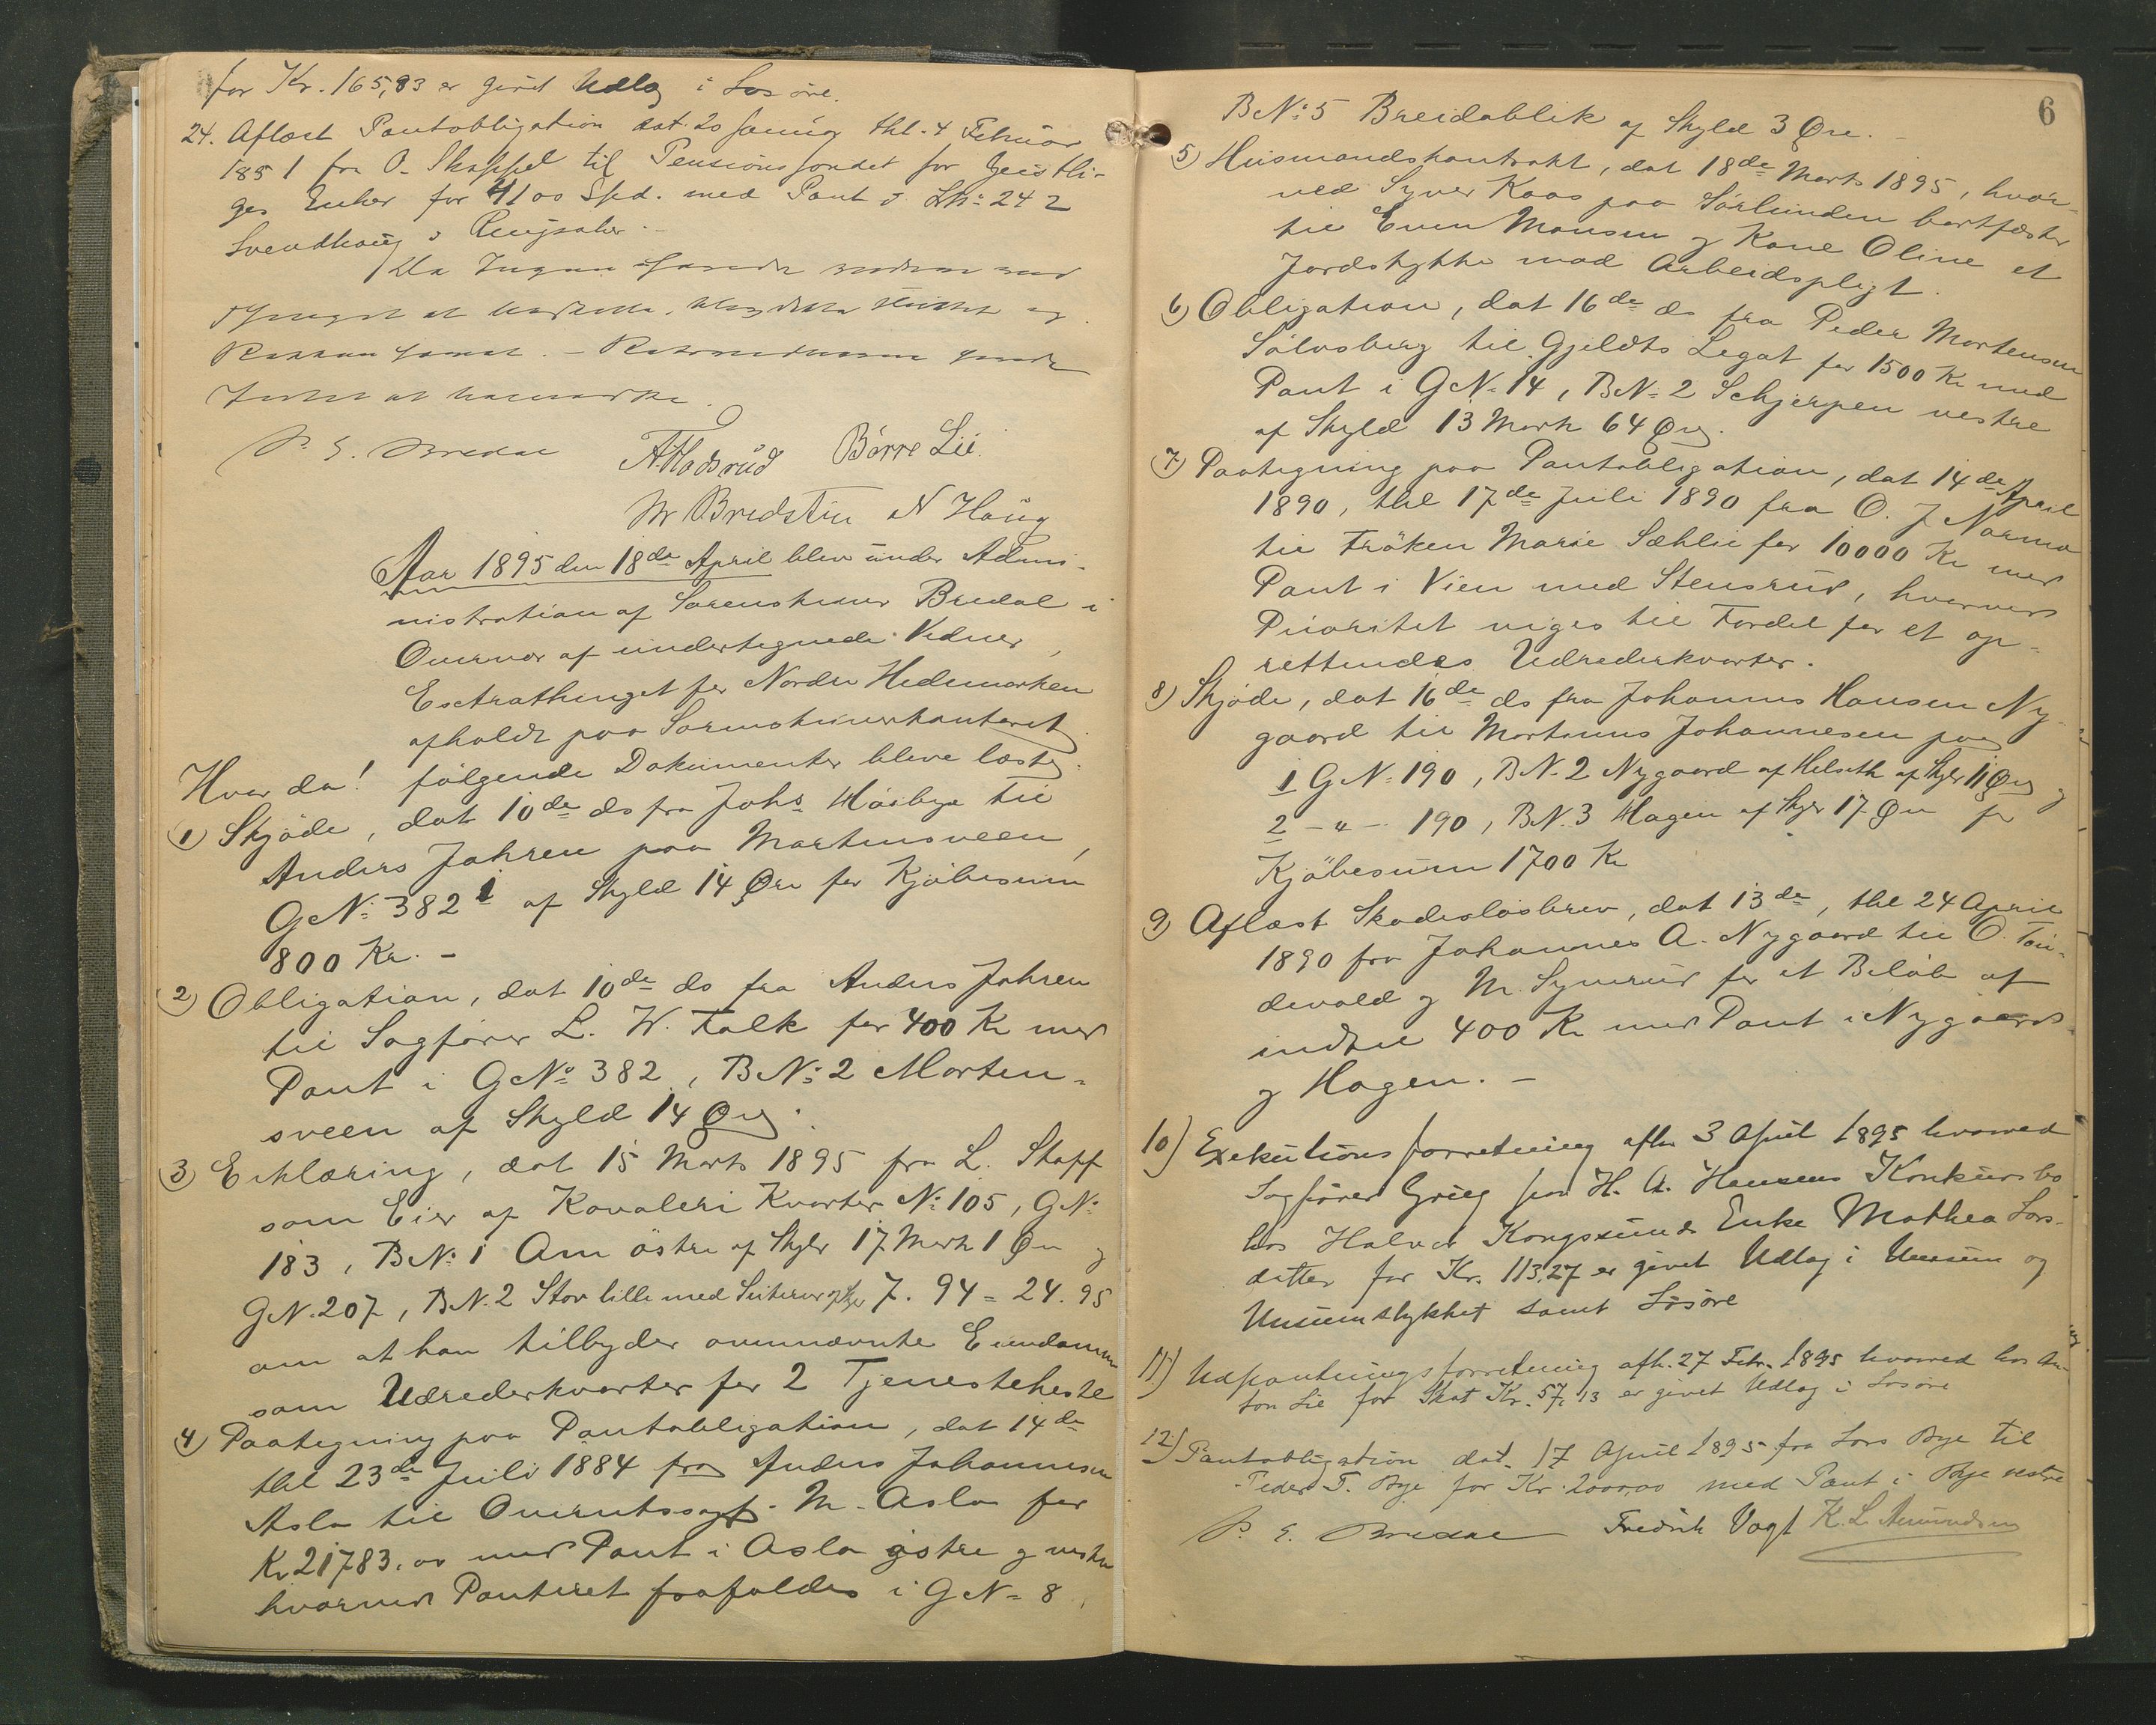 for Kr. 165,83 er givet Udlæg i Løsøre.
24. Aflæst Pantobligation dat. 20 Januar thl. 4 Februar
1851 fra O. Skappel til Pensionsfondet for Geistli-
ges Enker for 4100 Spd. med Pant i LNo: 242
Svendhaug i Ringsaker. -
Da Ingen
at
Retten hævet. -
Intet at bemærke.
P. E. Bredal A Hadsrud Börre Lii.
M Bredstuu N Haug
Aar 1895 den 18de April blev under Admi-
nistration af Sorenskriver Bredal i
Overvær af undertegnede Vidner,
Extrathinget for Nordre Hedemarken
afholdt paa Sorenskriverkontoret.
Hvor da! følgende Dokumenter bleve læste:
1) Skjöde, dat 10de ds fra Johs. Häsbye til
Anders Jahren paa Martensveen,
GNo: 382 1 af Skyld 14 Øre for Kjøbesum
800 Kr. -
2) Obligation, dat 10de ds fra Anders Jahren
til Sagfører L. W. Falk for 400 Kr med
Pant i GNo: 382, BNo: 2 Morten-
sveen af Skyld 14 Øre.
3) Erklæring, dat 15 Marts 1895 fra L. Staff
som Eier af Kavaleri Kvarter No: 105, GNo:
183, BNo: 1 Am östre af Skyld 17 Mark 1 Øre og
GN. 207, BN. 2 Stor lille med af Skyld 7. 94 = 24. 95
om at han tilbyder ovennævnte Eiendomme
som Udrederkvarter for 2 Tjenesteheste
4) Paategning paa Pantobligation, dat 14de
thl 23de Juli 1884 fra Anders Johannesen
Asla til Overretssagf. M. Asla for
Kr 21783.00 med Pant i Asla østre og vestre
hvorved Panteret frafaldes i GN= 8,
6
BNo: 5 Breidablik af Skyld 3 Øre. -
5) Husmandskontrakt, dat 18de Marts 1895, hvor-
ved Syver Kaas paa Sørlunden bortfæster
til Even Monsen og Kone Oline et
Jordstykke mod Arbeidspligt.
6) Obligation, dat 16de ds fra Peder Mortensen
Sölvsberg til Gjeldts Legat for 1500 Kr med
Pant i GN= 14, BN= 2 Schjerpen vestre
af Skyld 13 Mark 64 Øre.
7) Paategning paa Pantobligation, dat 14de April
1890, thl 17de Juli 1890 fra O. J Narmo
til Fröken Marie Sæhlie for 10000 Kr med
Pant i Vien med Stensrud, hvorved
Prioritet viges til Fordel for et op-
rettendes Udrederkvarter.
8) Skjöde, dat 16de ds fra Johannes Hansen Ny-
gaard til Martinus Johannesen paa
1 GN= 190, BN. 2 Nygaard af Helseth af Skyld 11 Øre og
2 - " - 190, BN. 3 Hagen af Skyld 17 Øre for
Kjöbesum 1700 Kr
9) Aflæst Skadesløsbrev, dat 13de, thl 24 April
1890 fra Johannes A. Nygaard til O. Tan-
devold og M. Synsrud for et Beløb af
indtil 400 Kr med Pant i Nygaard
og Hagen. -
10) Exekutionsforretning afh. 3 April 1895 hvorved
Sagfører Grieg for H. A. Hansens Konkursbo
hos Halvor Kongssunds Enke Mathea Lars-
datter for Kr. 113.27 er givet Udlæg i Unsum og
Unsumstykket samt Løsøre
11) Udpantningsforretning afh. 27 Febr. 1895 hvorved hos An-
ton Lie for Skat Kr. 57,13 er givet Udlæg i Løsøre
12) Pantobligation dat. 17 April 1895 fra Lars Bye til
Peder T. Bye for Kr. 2000,00 med Pant i Bye vestre
P. E. Bredal Fredrik Vogt K. L. Amundsen